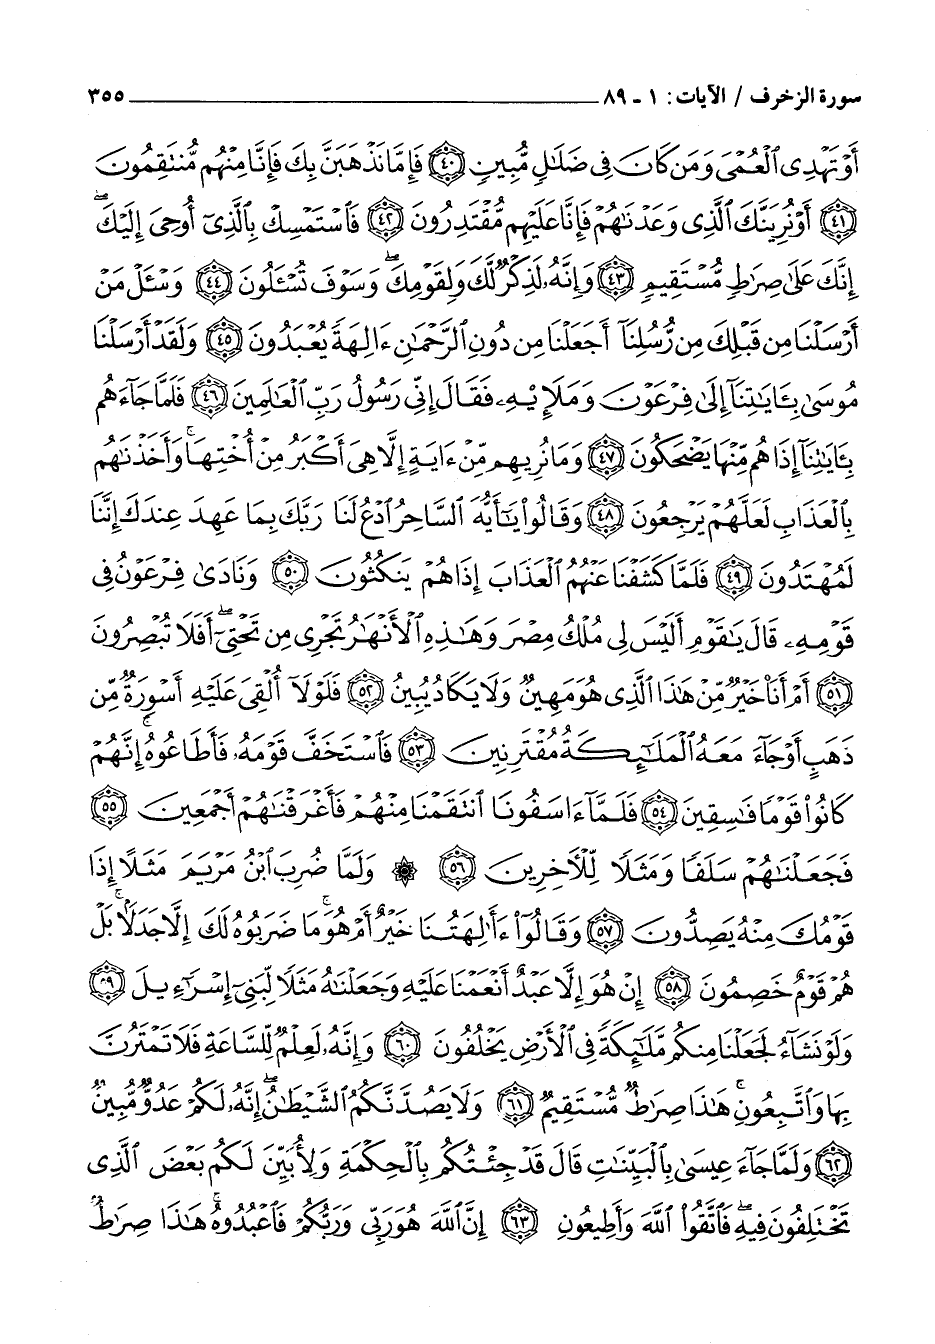 سورة الزخرف / الآيات : ١ - ٨٩ ٣٥٥
أَوْ تَهْدِى ٱلْعُمْىَ وَمَن كَانَ فِى ضَلَٰلٍ مُّبِينٍ ٤٠ فَإِمَّا نَذْهَبَنَّ بِكَ فَإِنَّا مِنْهُم مُّنتَقِمُونَ
٤١ أَوْ نُرِيَنَّكَ ٱلَّذِى وَعَدْنَٰهُمْ فَإِنَّا عَلَيْهِم مُّقْتَدِرُونَ ٤٢ فَٱسْتَمْسِكْ بِٱلَّذِىٓ أُوحِىَ إِلَيْكَ ۖ
إِنَّكَ عَلَىٰ صِرَٰطٍ مُّسْتَقِيمٍ ٤٣ وَإِنَّهُۥ لَذِكْرٌ لَّكَ وَلِقَوْمِكَ ۖ وَسَوْفَ تُسْـَٔلُونَ ٤٤ وَسْـَٔلْ مَنْ
أَرْسَلْنَا مِن قَبْلِكَ مِن رُّسُلِنَآ أَجَعَلْنَا مِن دُونِ ٱلرَّحْمَٰنِ ءَالِهَةً يُعْبَدُونَ ٤٥ وَلَقَدْ أَرْسَلْنَا
مُوسَىٰ بِـَٔايَٰتِنَآ إِلَىٰ فِرْعَوْنَ وَمَلَإِي۟هِۦ فَقَالَ إِنِّى رَسُولُ رَبِّ ٱلْعَٰلَمِينَ ٤٦ فَلَمَّا جَآءَهُم
بِـَٔايَٰتِنَآ إِذَا هُم مِّنْهَا يَضْحَكُونَ ٤٧ وَمَا نُرِيهِم مِّنْ ءَايَةٍ إِلَّا هِىَ أَكْبَرُ مِنْ أُخْتِهَا ۖ وَأَخَذْنَٰهُم
بِٱلْعَذَابِ لَعَلَّهُمْ يَرْجِعُونَ ٤٨ وَقَالُوا۟ يَٰٓأَيُّهَ ٱلسَّاحِرُ ٱدْعُ لَنَا رَبَّكَ بِمَا عَهِدَ عِندَكَ إِنَّنَا
لَمُهْتَدُونَ ٤٩ فَلَمَّا كَشَفْنَا عَنْهُمُ ٱلْعَذَابَ إِذَا هُمْ يَنكُثُونَ ٥٠ وَنَادَىٰ فِرْعَوْنُ فِى
قَوْمِهِۦ قَالَ يَٰقَوْمِ أَلَيْسَ لِى مُلْكُ مِصْرَ وَهَٰذِهِ ٱلْأَنْهَٰرُ تَجْرِى مِن تَحْتِىٓ ۖ أَفَلَا تُبْصِرُونَ
٥١ أَمْ أَنَا۠ خَيْرٌ مِّنْ هَٰذَا ٱلَّذِى هُوَ مَهِينٌ وَلَا يَكَادُ يُبِينُ ٥٢ فَلَوْلَآ أُلْقِىَ عَلَيْهِ أَسْوِرَةٌ مِّن
ذَهَبٍ أَوْ جَآءَ مَعَهُ ٱلْمَلَٰٓئِكَةُ مُقْتَرِنِينَ ٥٣ فَٱسْتَخَفَّ قَوْمَهُۥ فَأَطَاعُوهُ ۚ إِنَّهُمْ
كَانُوا۟ قَوْمًا فَٰسِقِينَ ٥٤ فَلَمَّآ ءَاسَفُونَا ٱنتَقَمْنَا مِنْهُمْ فَأَغْرَقْنَٰهُمْ أَجْمَعِينَ ٥٥
فَجَعَلْنَٰهُمْ سَلَفًا وَمَثَلًا لِّلْـَٔاخِرِينَ ٥٦ ۞ وَلَمَّا ضُرِبَ ٱبْنُ مَرْيَمَ مَثَلًا إِذَا
قَوْمُكَ مِنْهُ يَصِدُّونَ ٥٧ وَقَالُوٓا۟ ءَأَٰلِهَتُنَا خَيْرٌ أَمْ هُوَ ۚ مَا ضَرَبُوهُ لَكَ إِلَّا جَدَلًۢا ۚ بَلْ
هُمْ قَوْمٌ خَصِمُونَ ٥٨ إِنْ هُوَ إِلَّا عَبْدٌ أَنْعَمْنَا عَلَيْهِ وَجَعَلْنَٰهُ مَثَلًا لِّبَنِىٓ إِسْرَٰٓءِيلَ ٥٩
وَلَوْ نَشَآءُ لَجَعَلْنَا مِنكُم مَّلَٰٓئِكَةً فِى ٱلْأَرْضِ يَخْلُفُونَ ٦٠ وَإِنَّهُۥ لَعِلْمٌ لِّلسَّاعَةِ فَلَا تَمْتَرُنَّ
بِهَا وَٱتَّبِعُونِ ۚ هَٰذَا صِرَٰطٌ مُّسْتَقِيمٌ ٦١ وَلَا يَصُدَّنَّكُمُ ٱلشَّيْطَٰنُ ۖ إِنَّهُۥ لَكُمْ عَدُوٌّ مُّبِينٌ
٦٢ وَلَمَّا جَآءَ عِيسَىٰ بِٱلْبَيِّنَٰتِ قَالَ قَدْ جِئْتُكُم بِٱلْحِكْمَةِ وَلِأُبَيِّنَ لَكُم بَعْضَ ٱلَّذِى
تَخْتَلِفُونَ فِيهِ ۖ فَٱتَّقُوا۟ ٱللَّهَ وَأَطِيعُونِ ٦٣ إِنَّ ٱللَّهَ هُوَ رَبِّى وَرَبُّكُمْ فَٱعْبُدُوهُ ۚ هَٰذَا صِرَٰطٌ